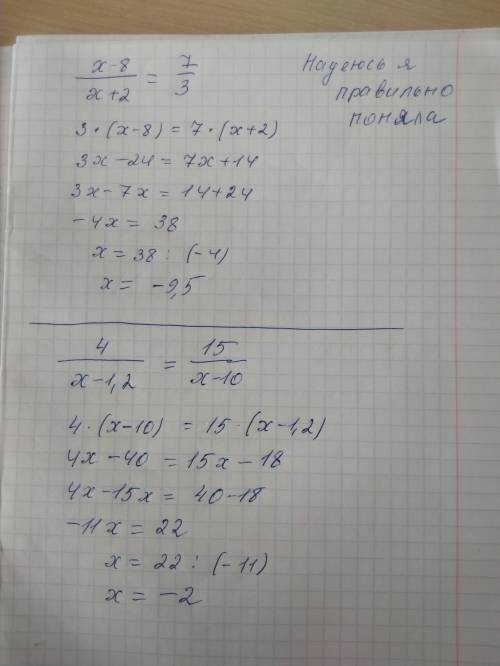 x-8/x+2 = 7/3
Надеюсь я
правильно
поняла
3·(x-8) = 7·(x+2)
3x-24 = 7x+14
3x-7x = 14+24
-4x = 38
x = 38 : (-4)
x = -9,5
4/x-1,2 = 15/x-10
4·(x-10) = 15·(x-1,2)
4x-40 = 15x-18
4x-15x = 40-18
-11x = 22
x = 22 : (-11)
x = -2